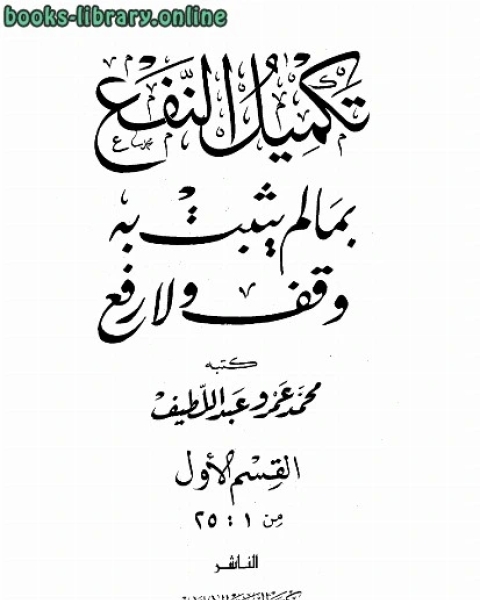 books-library.online
تكميل النفع
بما لم يثبت به
وقف ولا رفع
كتبه
محمد عمرو عبد اللطيف
القسم الأول
من ١ : ٢٥
الناشر